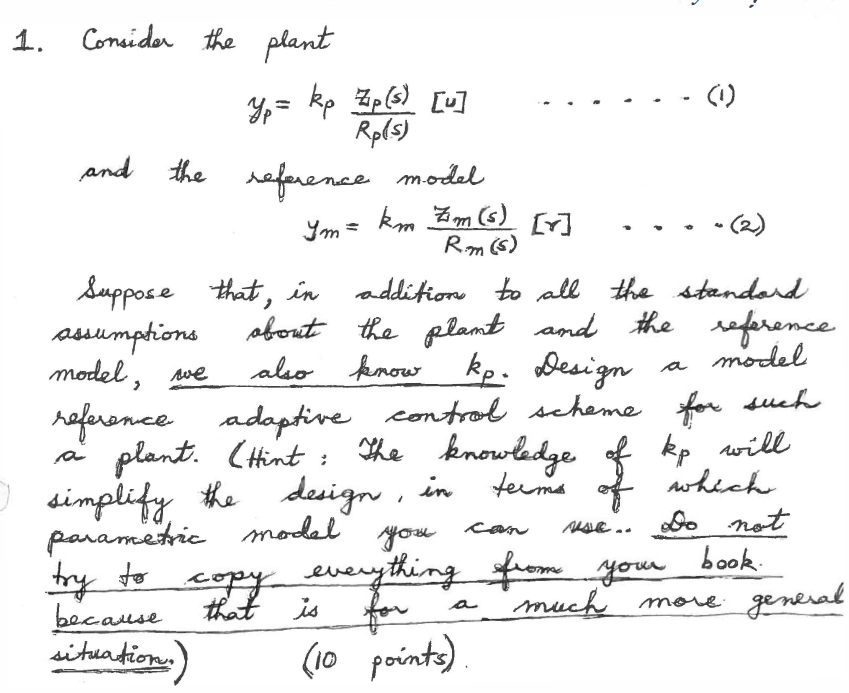 1. Consider the plant
y_p = k_p Z_p(s)/R_p(s) [u] ...... (1)
and the reference model
y_m = k_m Z_m(s)/R_m(s) [r] .... (2)
Suppose that, in addition to all the standard
assumptions about the plant and the reference
model, we also know k_p. Design a model
reference adaptive control scheme for such
a plant. (Hint : The knowledge of k_p will
simplify the design, in terms of which
parametric model you can use.. Do not
try to copy everything from your book
because that is for a much more general
situation.) (10 points).